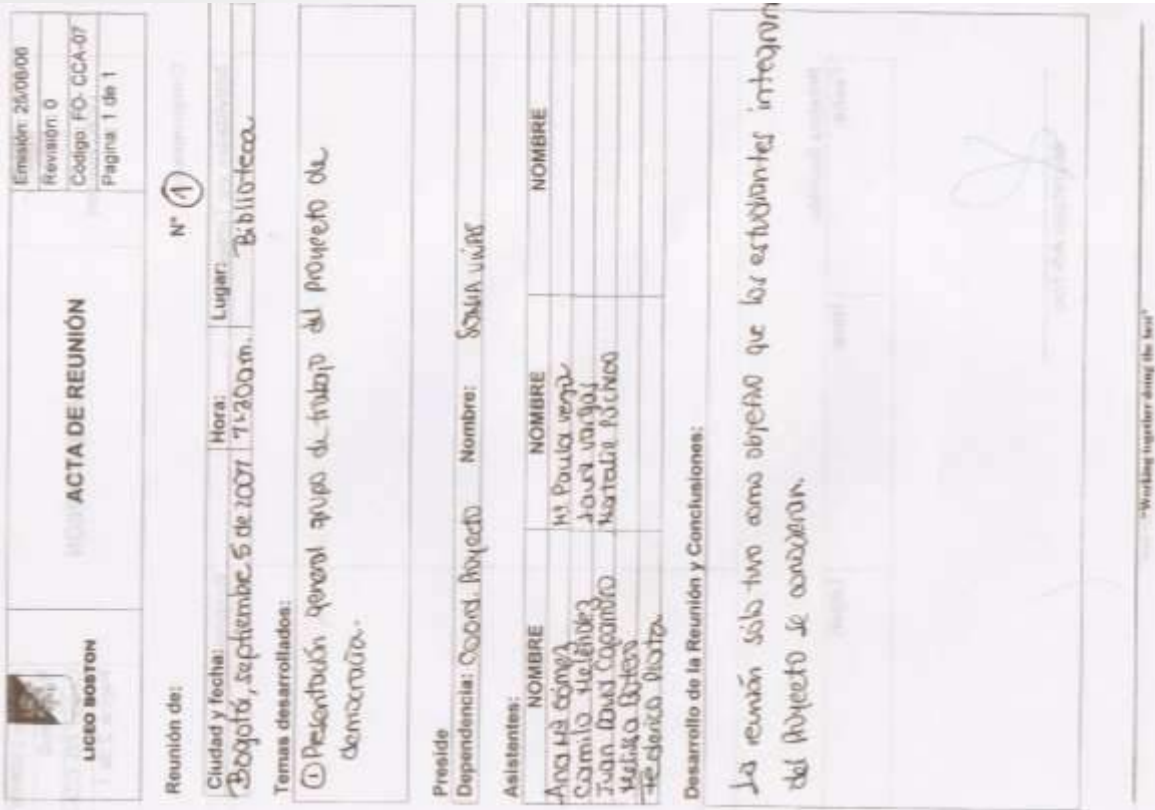 LICEO BOSTON
ACTA DE REUNIÓN
Emisión: 25/06/06
Revisión: 0
Código: FO- CCA-07
Pagina: 1 de 1
Reunión de:
N° 1
Ciudad y fecha:
Hora:
Lugar:
Bogotá, septiembre 5 de 2007
7:200a.m.
Biblioteca
Temas desarrollados:
① Presentación general grupo de trabajo del proyecto de
democracia.
Preside
Dependencia: Coord. Proyecto
Nombre:
Asistentes:
NOMBRE
NOMBRE
NOMBRE
Ana Mª Gómez
Mª Paula Vega
Camilo Meléndez
Vargas
Juan David
Natalie Pacheco
Melissa
Federico Plata
Desarrollo de la Reunión y Conclusiones:
La reunión sólo tuvo como objetivo que los estudiantes integran
del Proyecto se conocieran.
"Working together doing the best"